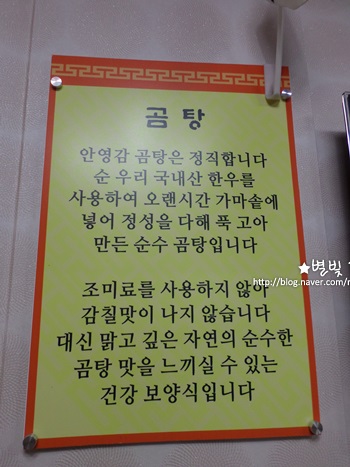 곰탕
안영감 곰탕은 정직합니다
순 우리 국내산 한우를
사용하여 오랜시간 가마솥에
넣어 정성을 다해 푹 고아
만든 순수 곰탕입니다
조미료를 사용하지 않아
감칠맛이 나지 않습니다
대신 맑고 깊은 자연의 순수한
곰탕 맛을 느끼실 수 있는
건강 보양식입니다
★별빛
http://blog.naver.com/